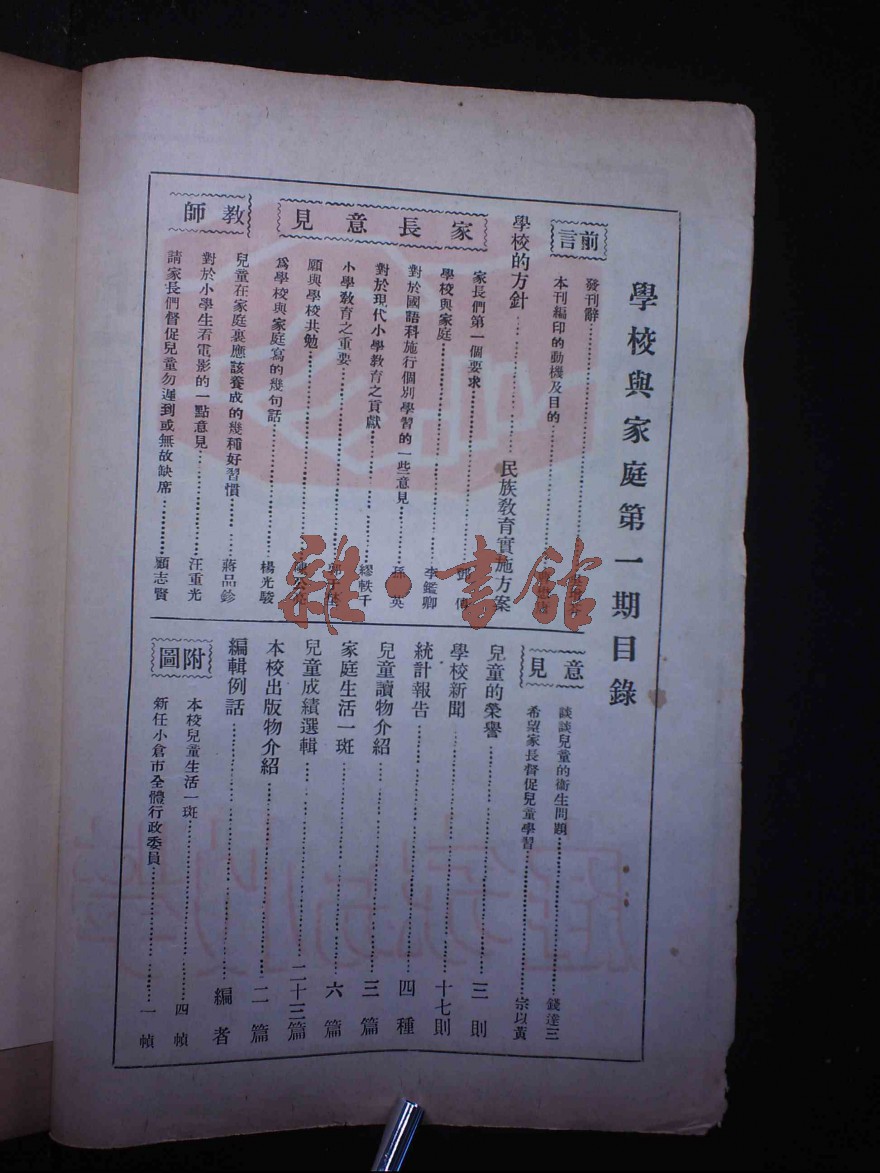 學校與家庭第一期目錄
前言
發刊辭
本刊編印的動機及目的
學校的方針 民族敎育實施方案
家長意見
家長們第一個要求
學校與家庭 李鑑卿
對於國語科施行個別學習的一些意見 孫英
對於現代小學敎育之貢獻 繆軼千
小學敎育之重要
願與學校共勉
爲學校與家庭寫的幾句話 楊光駿
敎師
兒童在家庭裏應該養成的幾種好習慣 蔣品鉁
對於小學生看電影的一點意見 汪重光
請家長們督促兒童勿遲到或無故缺席 顧志賢
意見
談談兒童的衞生問題 錢達三
希望家長督促兒童學習 宗以黃
兒童的榮譽 三則
學校新聞 十七則
統計報告 四種
兒童讀物介紹 三篇
家庭生活一斑 六篇
兒童成績選輯 二十三篇
本校出版物介紹 二篇
編輯例話 編者
附圖
本校兒童生活一斑 四幀
新任小倉市全體行政委員 一幀
雜·書館